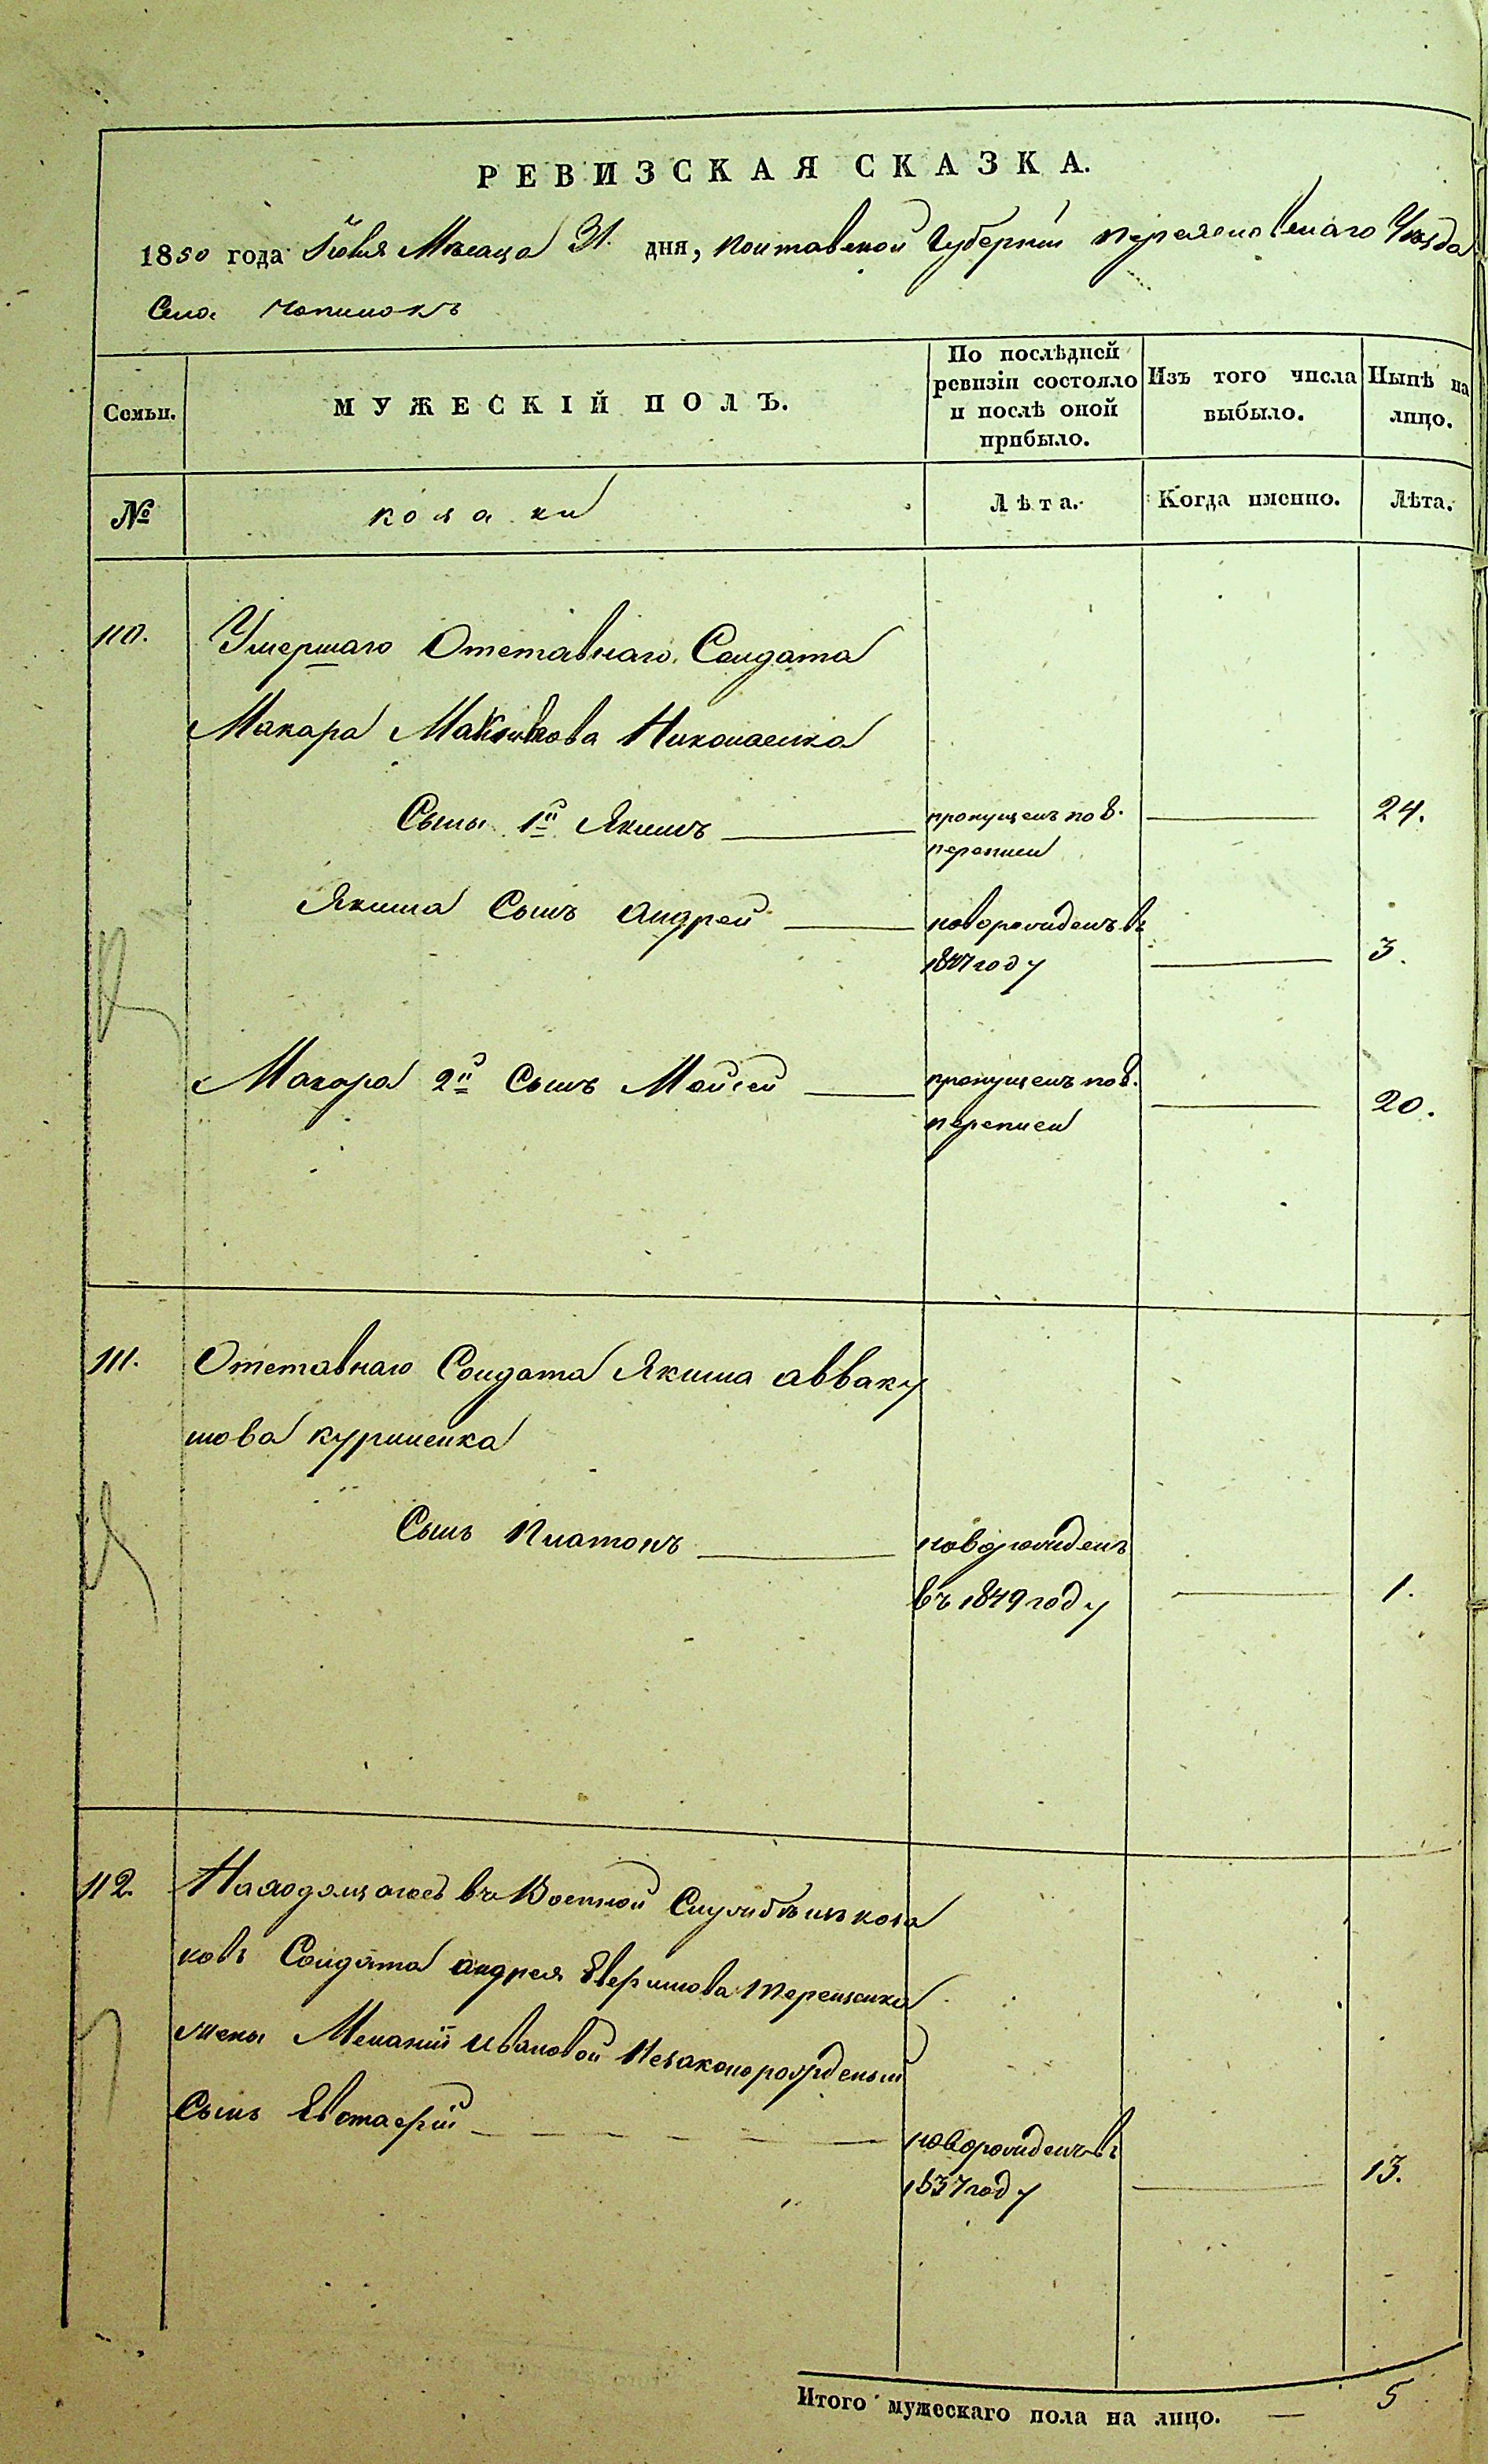 РЕВИЗСКАЯ СКАЗКА.
1850 года Іюля Мѣсяца 31. дня, Полтавской Губерніи Переясловскаго Уѣзда
Села Чопилокъ
Семьи.
МУЖЕСКІЙ ПОЛЪ.
По послѣдней ревизіи состояло и послѣ оной прибыло.
Изъ того числа выбыло.
Нынѣ на лицо.
№
козаки
Лѣта.
Когда именно.
Лѣта.
110. Умершаго Отставнаго Солдата
Макара Николаенка
Сыны 1й Якимъ пропущенъ по 8. 24.
переписи
Якима Сынъ Андрей новорожденъ въ
1847 году 3.
Макара 2й Сынъ Мойсей пропущенъ по 8.
переписи 20.
111. Отставнаго Солдата Якима Авваку
мова Куриленка
Сынъ Платонъ новорожденъ
въ 1849 году 1.
112. Находящагося въ Военной Службѣ изъ коза
ковъ Солдата Андрея Терещенка
жены Меланіи Ивановой Незаконорожденый
Сынъ Евстафій новорожденъ въ
1837 году 13.
Итого мужескаго пола на лицо. — 5